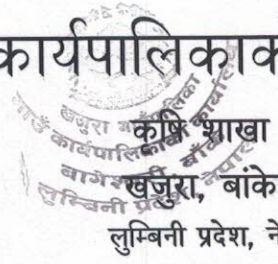 कार्यपालिकाक
कृषि शाखा
खजुरा, बांके
लुम्बिनी प्रदेश, ने
खजुरा गाउँपालिका
गाउँ कार्यपालिकाको कार्यालय
बागेश्वरी, बाँके
लुम्बिनी प्रदेश, नेपाल